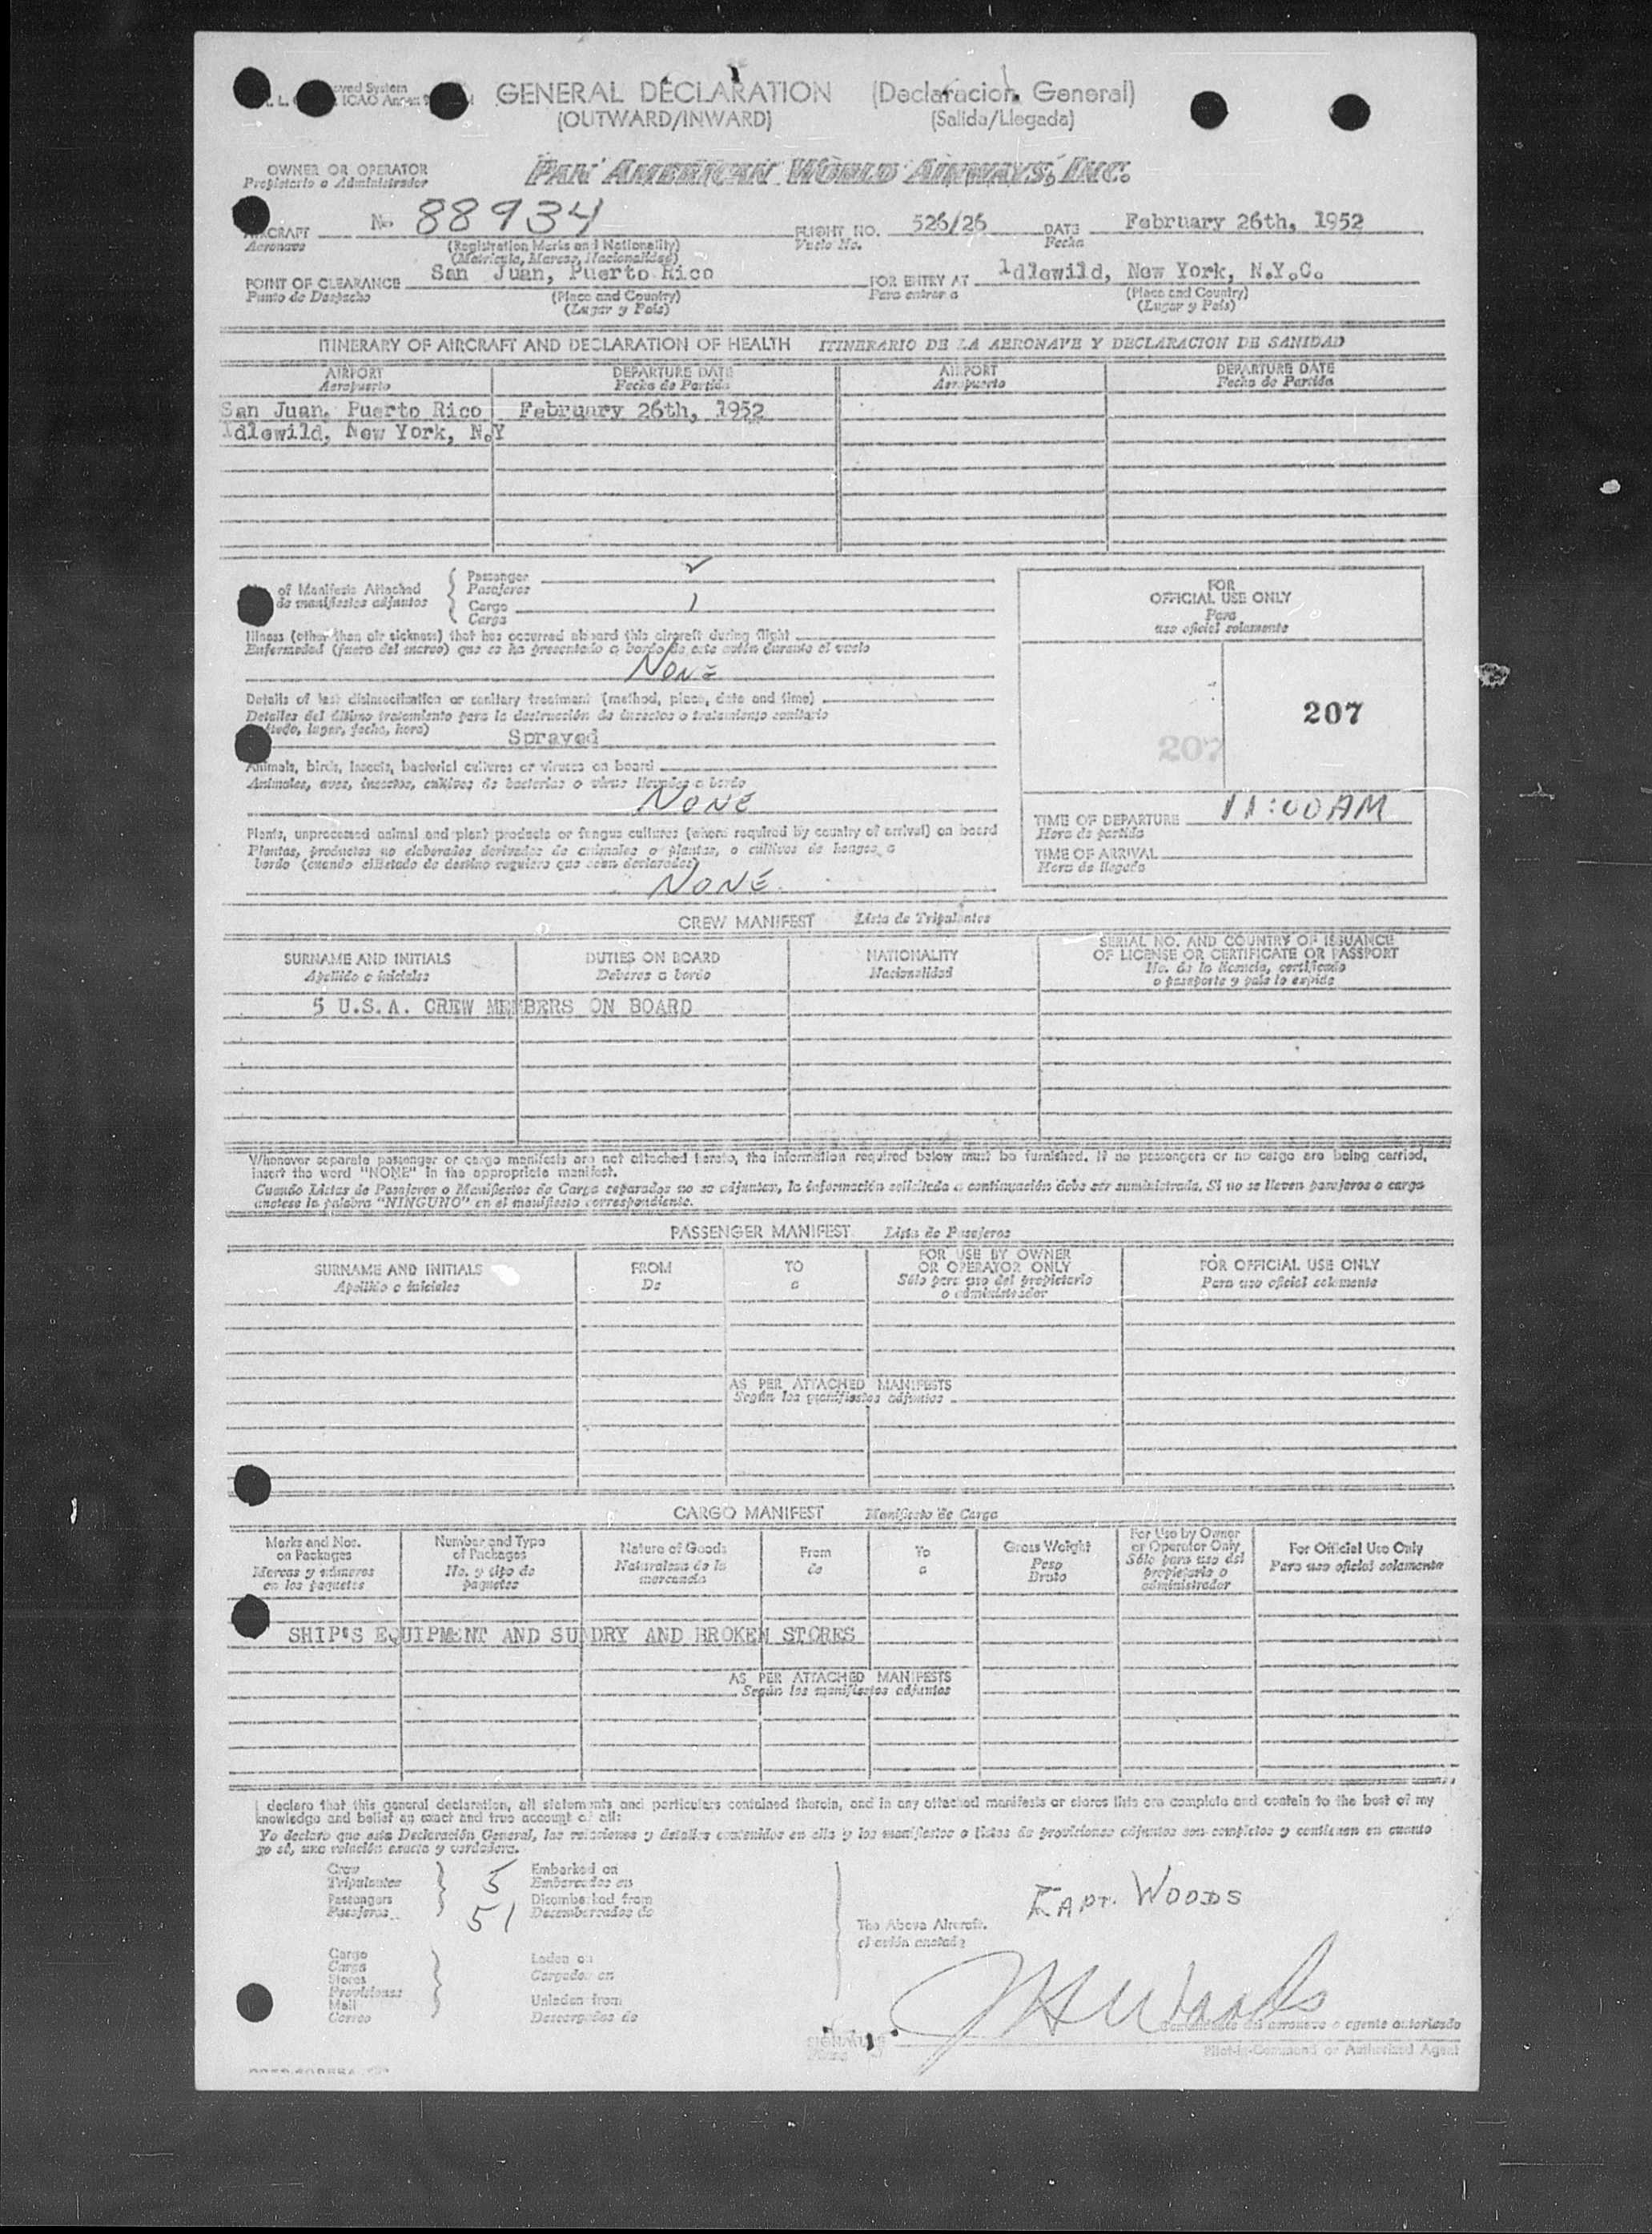 GENERAL DECLARATION (Declaracion General)
(OUTWARD/INWARD) (Salida/Llegada)
OWNER OR OPERATOR PAN AMERICAN WORLD AIRWAYS, INC.
Propietario o Administrador
AIRCRAFT No. 88934 FLIGHT NO. 526/26 DATE February 26th, 1952
Aeronave (Registration Marks and Nationality) Vuelo No. Fecha
(Matricula, Marcas, Nacionalidad)
POINT OF CLEARANCE San Juan, Puerto Rico FOR ENTRY AT Idlewild, New York, N.Y.C.
Punto de Despacho (Place and Country) Para entrar a (Place and Country)
(Lugar y País) (Lugar y País)
ITINERARY OF AIRCRAFT AND DECLARATION OF HEALTH ITINERARIO DE LA AERONAVE Y DECLARACION DE SANIDAD
AIRPORT DEPARTURE DATE AIRPORT DEPARTURE DATE
Aeropuerto Fecha de Partida Aeropuerto Fecha de Partida
San Juan, Puerto Rico February 26th, 1952
Idlewild, New York, N.Y
of Manifests Attached Passenger
de manifiestos adjuntos Pasajeros
Cargo 1
Carga
Illness (other than air sickness) that has occurred aboard this aircraft during flight
Enfermedad (fuera del mareo) que se ha presentado a bordo de este avión durante el vuelo
NONE
Details of last disinsectization or sanitary treatment (method, place, date and time)
Detalles del último tratamiento para la destrucción de insectos o tratamiento sanitario
(método, lugar, fecha, hora)
Sprayed
Animals, birds, insects, bacterial cultures or viruses on board
Animales, aves, insectos, cultivos de bacterias o virus llevados a bordo
NONE
Plants, unprocessed animal and plant products or fungus cultures (where required by country of arrival) on board
Plantas, productos no elaborados derivados de animales o plantas, o cultivos de hongos, a
bordo (cuando el Estado de destino requiera que sean declarados)
NONE
FOR
OFFICIAL USE ONLY
Para
uso oficial solamente
207
207
TIME OF DEPARTURE 11:00AM
Hora de partida
TIME OF ARRIVAL
Hora de llegada
CREW MANIFEST Lista de Tripulantes
SURNAME AND INITIALS DUTIES ON BOARD NATIONALITY SERIAL NO. AND COUNTRY OF ISSUANCE
OF LICENSE OR CERTIFICATE OR PASSPORT
Apellido e iniciales Deberes a bordo Nacionalidad No. de la licencia, certificado
o pasaporte y país lo expide
5 U.S.A. CREW MEMBERS ON BOARD
Whenever separate passenger or cargo manifests are not attached hereto, the information required below must be furnished. If no passengers or no cargo are being carried,
insert the word "NONE" in the appropriate manifest.
Cuando Listas de Pasajeros o Manifiestos de Carga separados no se adjuntan, la información solicitada a continuación debe ser suministrada. Si no se lleven pasajeros o carga
anótese la palabra "NINGUNO" en el manifiesto correspondiente.
PASSENGER MANIFEST Lista de Pasajeros
SURNAME AND INITIALS FROM TO FOR USE BY OWNER
OR OPERATOR ONLY FOR OFFICIAL USE ONLY
Apellido e iniciales De a Sólo para uso del propietario
o administrador Para uso oficial solamente
AS PER ATTACHED MANIFESTS
Según los manifiestos adjuntos
CARGO MANIFEST Manifiesto de Carga
Marks and Nos.
on Packages
Marcas y números
en los paquetes
Number and Type
of Packages
No. y tipo de
paquetes
Nature of Goods
Naturaleza de la
mercancía
From
de
To
a
Gross Weight
Peso
Bruto
For Use by Owner
or Operator Only
Sólo para uso del
propietario o
administrador
For Official Use Only
Para uso oficial solamente
SHIP'S EQUIPMENT AND SUNDRY AND BROKEN STORES
AS PER ATTACHED MANIFESTS
Según los manifiestos adjuntos
I declare that this general declaration, all statements and particulars contained therein, and in any attached manifests or stores lists are complete and contain to the best of my
knowledge and belief an exact and true account of all:
Yo declaro que esta Declaración General, las relaciones y detalles contenidos en ella y los manifiestos o listas de provisiones adjuntos son completos y contienen en cuanto
yo sé, una relación exacta y verdadera.
Crew 5 Embarked on
Tripulantes Embarcados en
Passengers 51 Disembarked from
Pasajeros Desembarcados de
The Above Aircraft.
el avión anotado
CAPT. WOODS
Cargo Laden on
Carga Cargados en
Stores
Provisiones
Mail Unladen from
Correo Descargados de
SIGNATURE JH Woods
Comandante del aeronave o agente autorizado
Pilot-in-Command or Authorized Agent